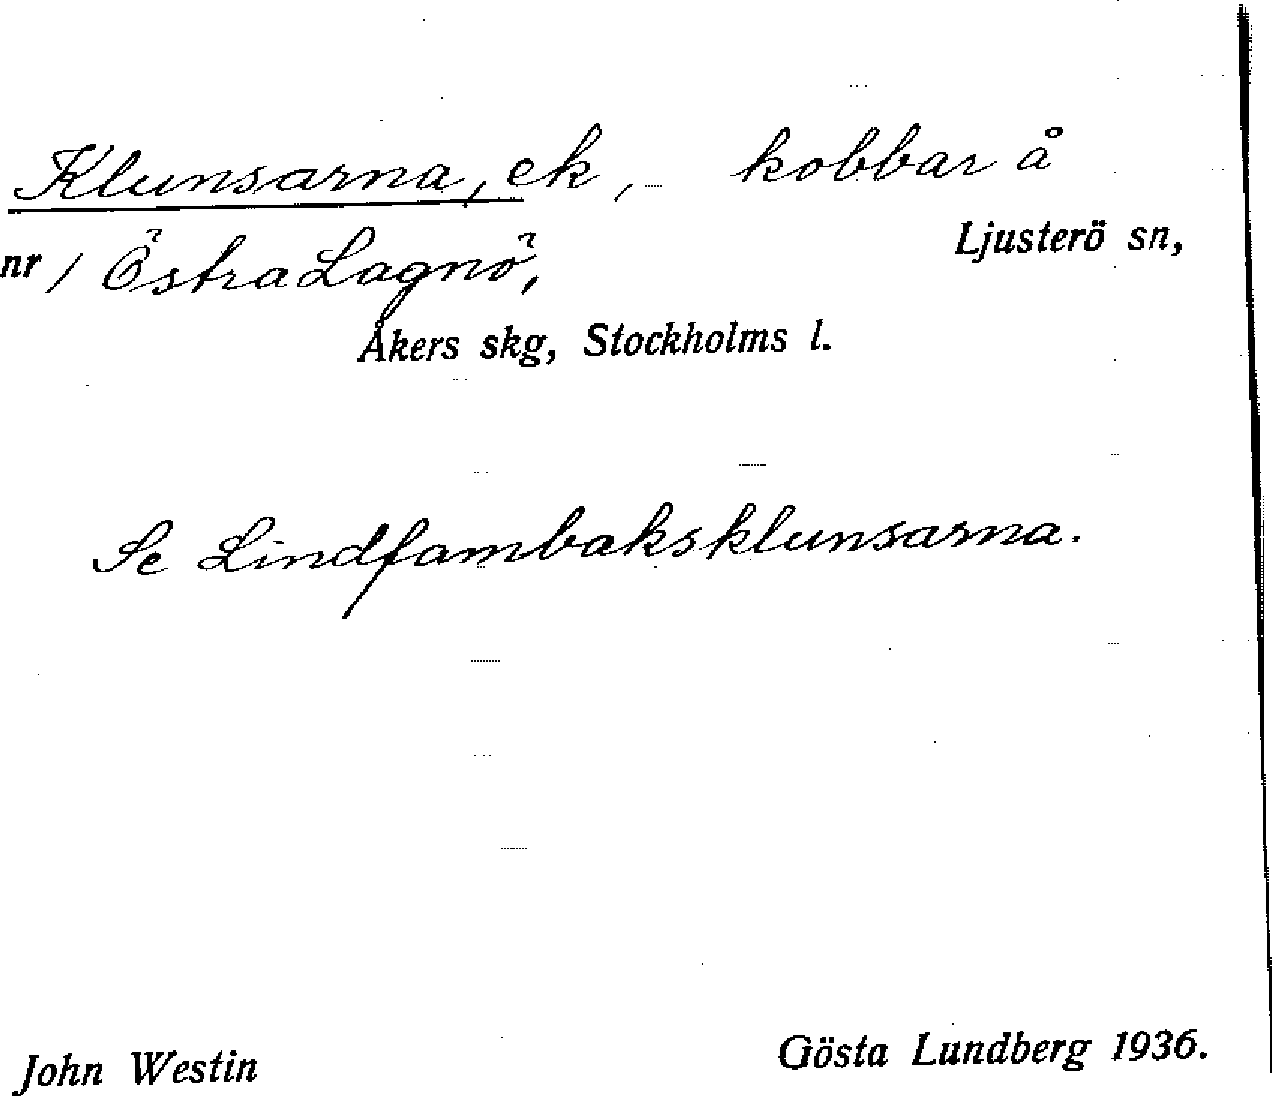 Klunsarna, ek, kobbar å
Ljusterö sn,
nr 1 Östra Lagnö,
Åkers skg, Stockholms l.
Se Lindfambaksklunsarna.
John Westin Gösta Lundberg 1936.